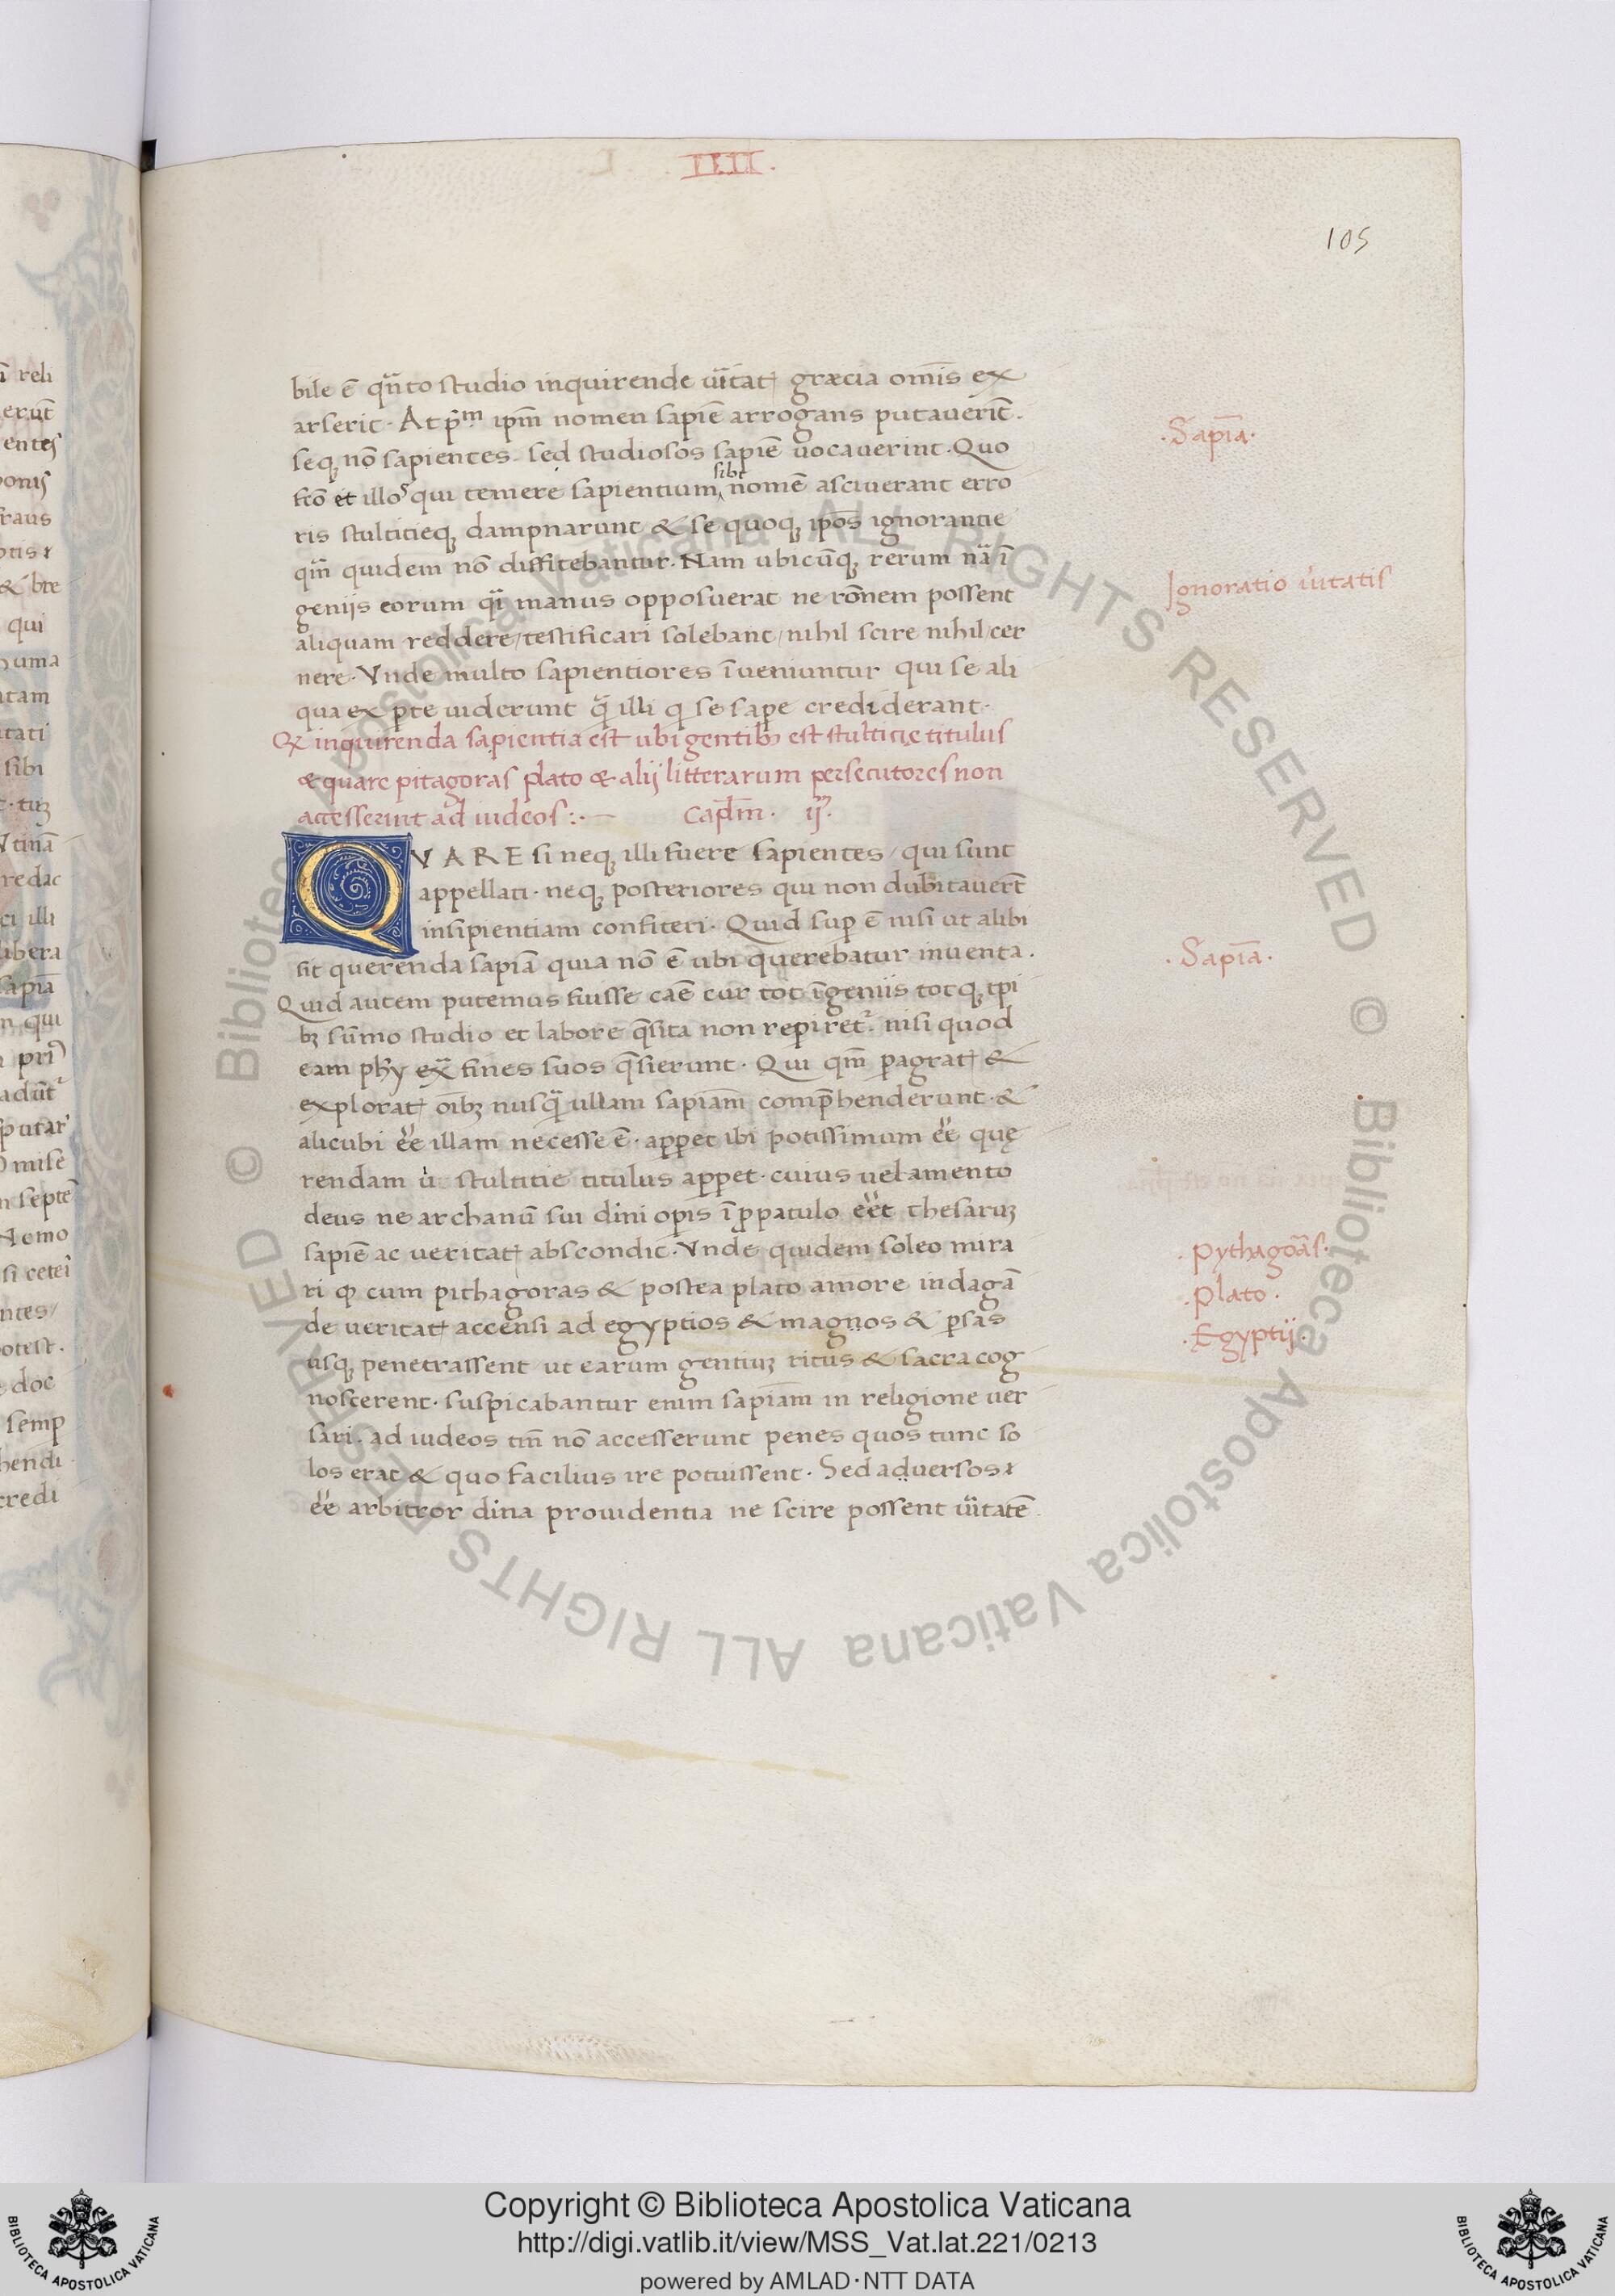 IIII.
105
bile ē qn̄to studio inquirende ūitat̄ græcia om̄is ex
arserit. At p̄m ip̄m nomen sapiē arrogans putaverīt.
seq; nō sapientes sed studiosos sapiē vocaverint. Quo
sibi
fcō et illos qui temere sapientium nomē asciverant erro
ris stultitieq; dampnarunt & se quoq; ip̄os ignorantie
qm̄ quidem nō diffitebantur. Nam ubicūq; rerum nā ī
geniis eorum q̄i manus opposuerat ne rōnem possent
aliquam reddere/testificari solebant/nihil scire nihil/cer
nere. Vnde multo sapientiores īveniuntur qui se ali
qua ex p̄te viderunt q̄ illi q se sape crediderant.
Q inquirenda sapientia est ubi gentib; est stultitie titulus
& quare pitagoras plato & alij litterarum persecutores non
accesserint ad iudeos:.— Cap̄lm. ij.
QVARE si neq; illi fuere sapientes/qui sunt
appellati. neq; posteriores qui non dubitaverīt
insipientiam confiteri. Quid sup ē nisi ut alibi
sit querenda sapīa quia nō ē ubi querebatur inventa.
Quid autem putemus fuisse caē cur tot īgeniis totq; tpi
b; sūmo studio et labore q̄sita non repiret̄. nisi quod
eam phy ex̄ fines suos q̄sierunt. Qui qm̄ pagrat̄ &
explorat̄ oīb; nusq̄ ullam sapiam̄ comp̄henderunt. &
alicubi ēē illam necesse ē. appet ibi potissimum ēē quę
rendam ù stultitie titulus appet. cuius velamento
deus ne archanū sui dīni opis ī ppatulo ēēt thesaruȝ
sapiē ac veritat̄ abscondit. Vnde quidem soleo mira
ri q cum pithagoras & postea plato amore indagā
de veritat̄ accensi ad egyptios & magnos & psas
usq; penetrassent/ut earum gentiuȝ ritus & sacra cog
noscerent. suspicabantur enim sapiam̄ in religione ver
sari. ad iudeos tm̄ nō accesserunt penes quos tunc so
los erat & quo facilius ire potuissent. Sed adversos
ēē arbitror dīna providentia ne scire possent ūitatē
.Sapīa.
Ignoratio ūitatis
.Sapīa.
.Pythagoās.
.Plato.
.Egyptij.
Copyright © Biblioteca Apostolica Vaticana
http://digi.vatlib.it/view/MSS_Vat.lat.221/0213
powered by AMLAD·NTT DATA
BIBLIOTECA APOSTOLICA VATICANA
BIBLIOTECA APOSTOLICA VATICANA
© Biblioteca Apostolica Vaticana ALL RIGHTS RESERVED © Biblioteca Apostolica Vaticana ALL RIGHTS RESERVED